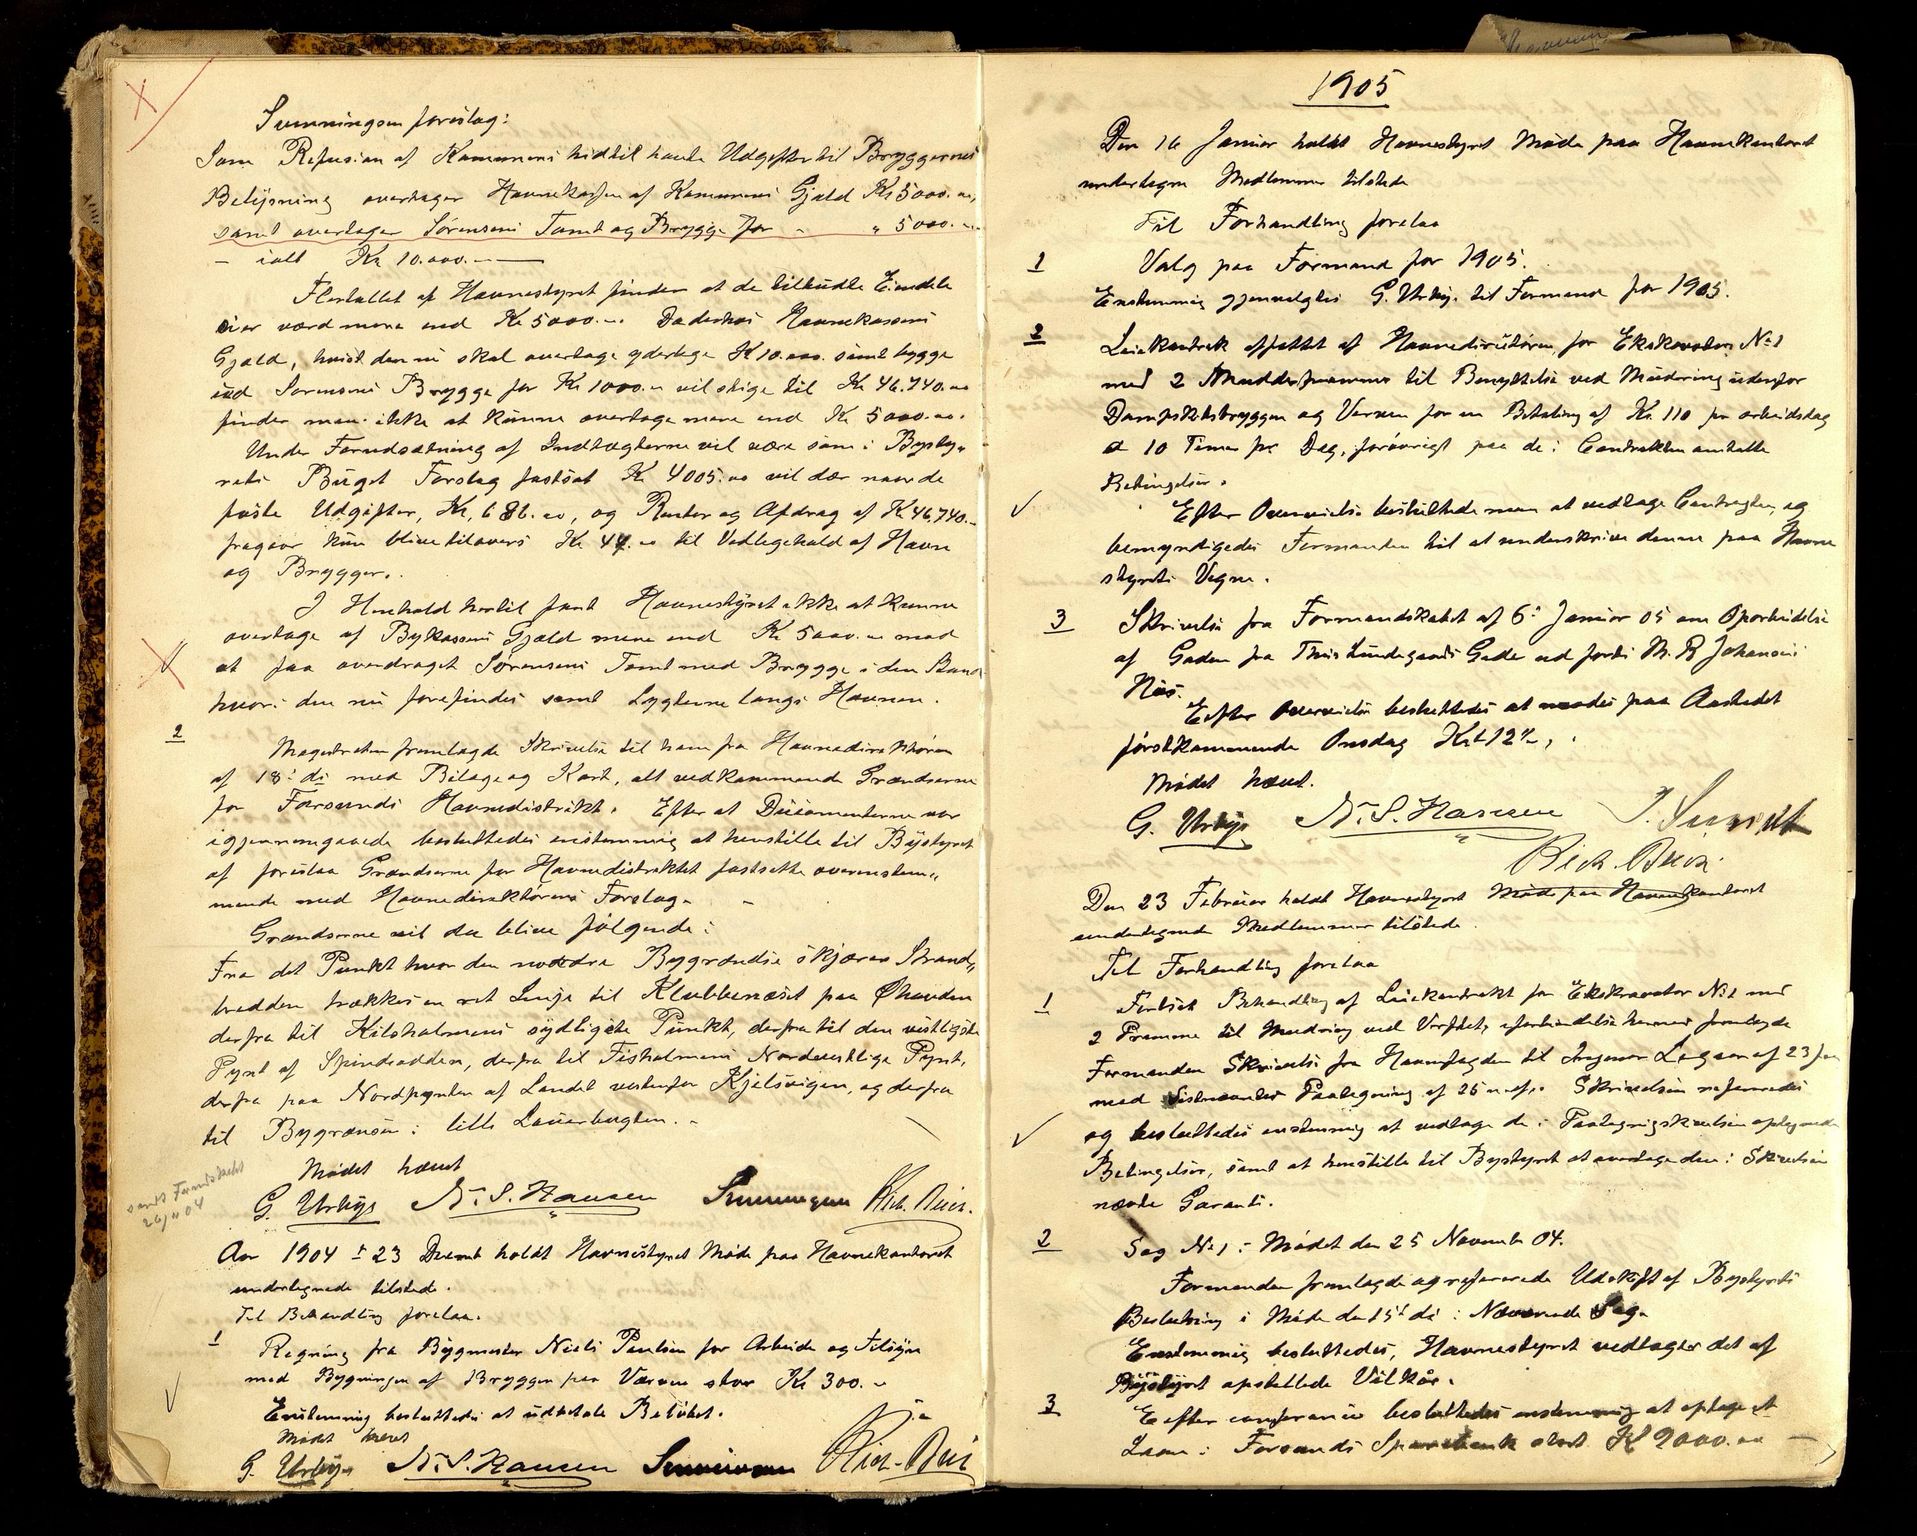 Svenningsen foreslog:
Som Refusion af Kommunens hidtil havte Udgifter til Bryggernes
Belysning overtager Havnekassen af Kommunens Gjæld Kr 5000.00,
samt overtager Sørensens Tomt og Brygge for - " 5000.-
- ialt Kr 10.000.-
Flertallet af Havnestyret finder at de tilbudte Eiendele
ei er værd mere end Kr 5000.-. Da derhos Havnekassens
Gjæld, hvis den nu skal overtage yderlige Kr 10.000. samt bygge
ud Sørensens Brygge for Kr 1000.00 vil stige til Kr 46.740.00
finder man ikke at kunne overtage mere end Kr 5000.00.
Under Forudsætning af Indtægterne vil være som i Bysty-
rets Budget Forslag fastsat Kr 4005.00 vil der naar de
faste Udgifter, Kr, 686.00, og Renter og Afdrag af Kr 46.740.-
fragaar kun blive tilovers Kr 44.00 til Vedligehold af Havn
og Brygger.
I Henhold hertil fandt Havnestyret ikke at kunne
overtage af Bykassens Gjæld mere end Kr 5000.00 mod
at faa overdraget Sørensens Tomt med Brygge i den Stand
hvori den nu forefindes samt Lygterne langs Havnen.
2
Magistraten fremlagde Skrivelse til ham fra Havnedirektøren
af 18' ds med Bilage og Kart, alt vedkommende Grændserne
for Farsunds Havnedistrikt. Efter at Documenterne var
igjennemgaaede besluttedes enstemmig at henstille til Bystyret
at foreslaa Grændserne for Havnedistriktet fastsatte overenstem-
mende med Havnedirektørens Forslag.
Grændserne vil da blive følgende:
Fra det Punkt hvor den nordre Bygrændse skjærer Strand-
bredden trækkes en ret Linje til Klubbenæset paa Øhavden
derfra til Kilsholmens sydligste Punkt, derfra til den vestligste
Pynt af Spindodden, derfra til Fisholmens Nordvestlige Pynt,
derfra paa Nordpynten af Landet vestenfor Kjelsvigen, og derfra
til Bygrænsen i lille Lauerbugten.
Mødet hævet
sendt Formandskabet
26/11 04
G. Urbye N. S. Hansen Svenningsen Rich. Buch.
Aar 1904 d 23 Decemb holdt Havnestyret Møde paa Havnekontoret
undertegnede tilstede.
Til Behandling forelaa.
1
Regning fra Bygmester Niels Poulsen for Arbeide og Tilsyn
med Bygningen af Bryggen paa Værven stor Kr 300.-
Enstemmig besluttedes at udbetale Beløbet.
Mødet hævet
G. Urbye N. S. Hansen Svenningsen Rich. Buch
1905
Den 16 Januar holdt Havnestyret Møde paa Havnekontoret
undertegne Medlemmer tilstede
Til Forhandling forelaa
1
Valg paa Formand for 1905.
Enstemmig gjenvalgtes G. Urbye til Formand for 1905.
2
Leiekontrak affattet af Havnedirektøren for Ekskavator No 1
med 2 Mudderpramme til Benyttelse ved Mudring udenfor
Dampskibsbryggen og Værven for en Betaling af Kr. 110 pr arbeidsdag
a 10 Timer pr Dag, forøvrigt paa de i Contrakten anførte
Betingelser.
Efter Overveielse besluttede man at vedtage Contrakten, og
bemyndigedes Formanden til at underskrive denne paa Havne
styrets Vegne.
3
Skrivelse fra Formandskabet af 6' Januar 05 om Oparbeidelse
af Gaden fra This Lundegaards Gade ud forbi M. B Johansens
Hus.
Efter Overveielse besluttedes at mødes paa Aastedet
førstkommende Onsdag Kl 12½.
Mødet hævet.
G. Urbye N. S. Hansen
Rich. Buch.
Den 23 Februar holdt Havnestyret Møde paa Havnekontoret
undertegnede Medlemmer tilstede.
Til Forhandling forelaa
1
Fortsat Behandling af Leiekontrakt for Ekskavator No 1 med
2 Pramme til Mudring ved Værftet, i forbindelse hermed fremlagde
Formanden Skrivelse fra Havnefogden til Ingeniør Lagaard af 23 Jan
med Paategning af 26 Skrivelsen refereredes
og besluttedes enstemmig at vedtage de i Paategningskrivelsen opstillede
Betingelser, samt at henstille til Bystyret at overtage den i Skrivelsen
nævnte Garanti.
2
Sag No 1 i Mødet den 25 November 04.
Formanden fremlagde og refererede Udskrift af Bystyrets
Beslutning i Møde den 15' ds i Nævnede Sag.
Enstemmig besluttedes, Havnestyret vedtager det af
Bystyret opstillede Vilkår.
3
Eefter conferance besluttedes enstemmig at optage et
Laan i Farsunds Sparebank stort Kr 9000.00